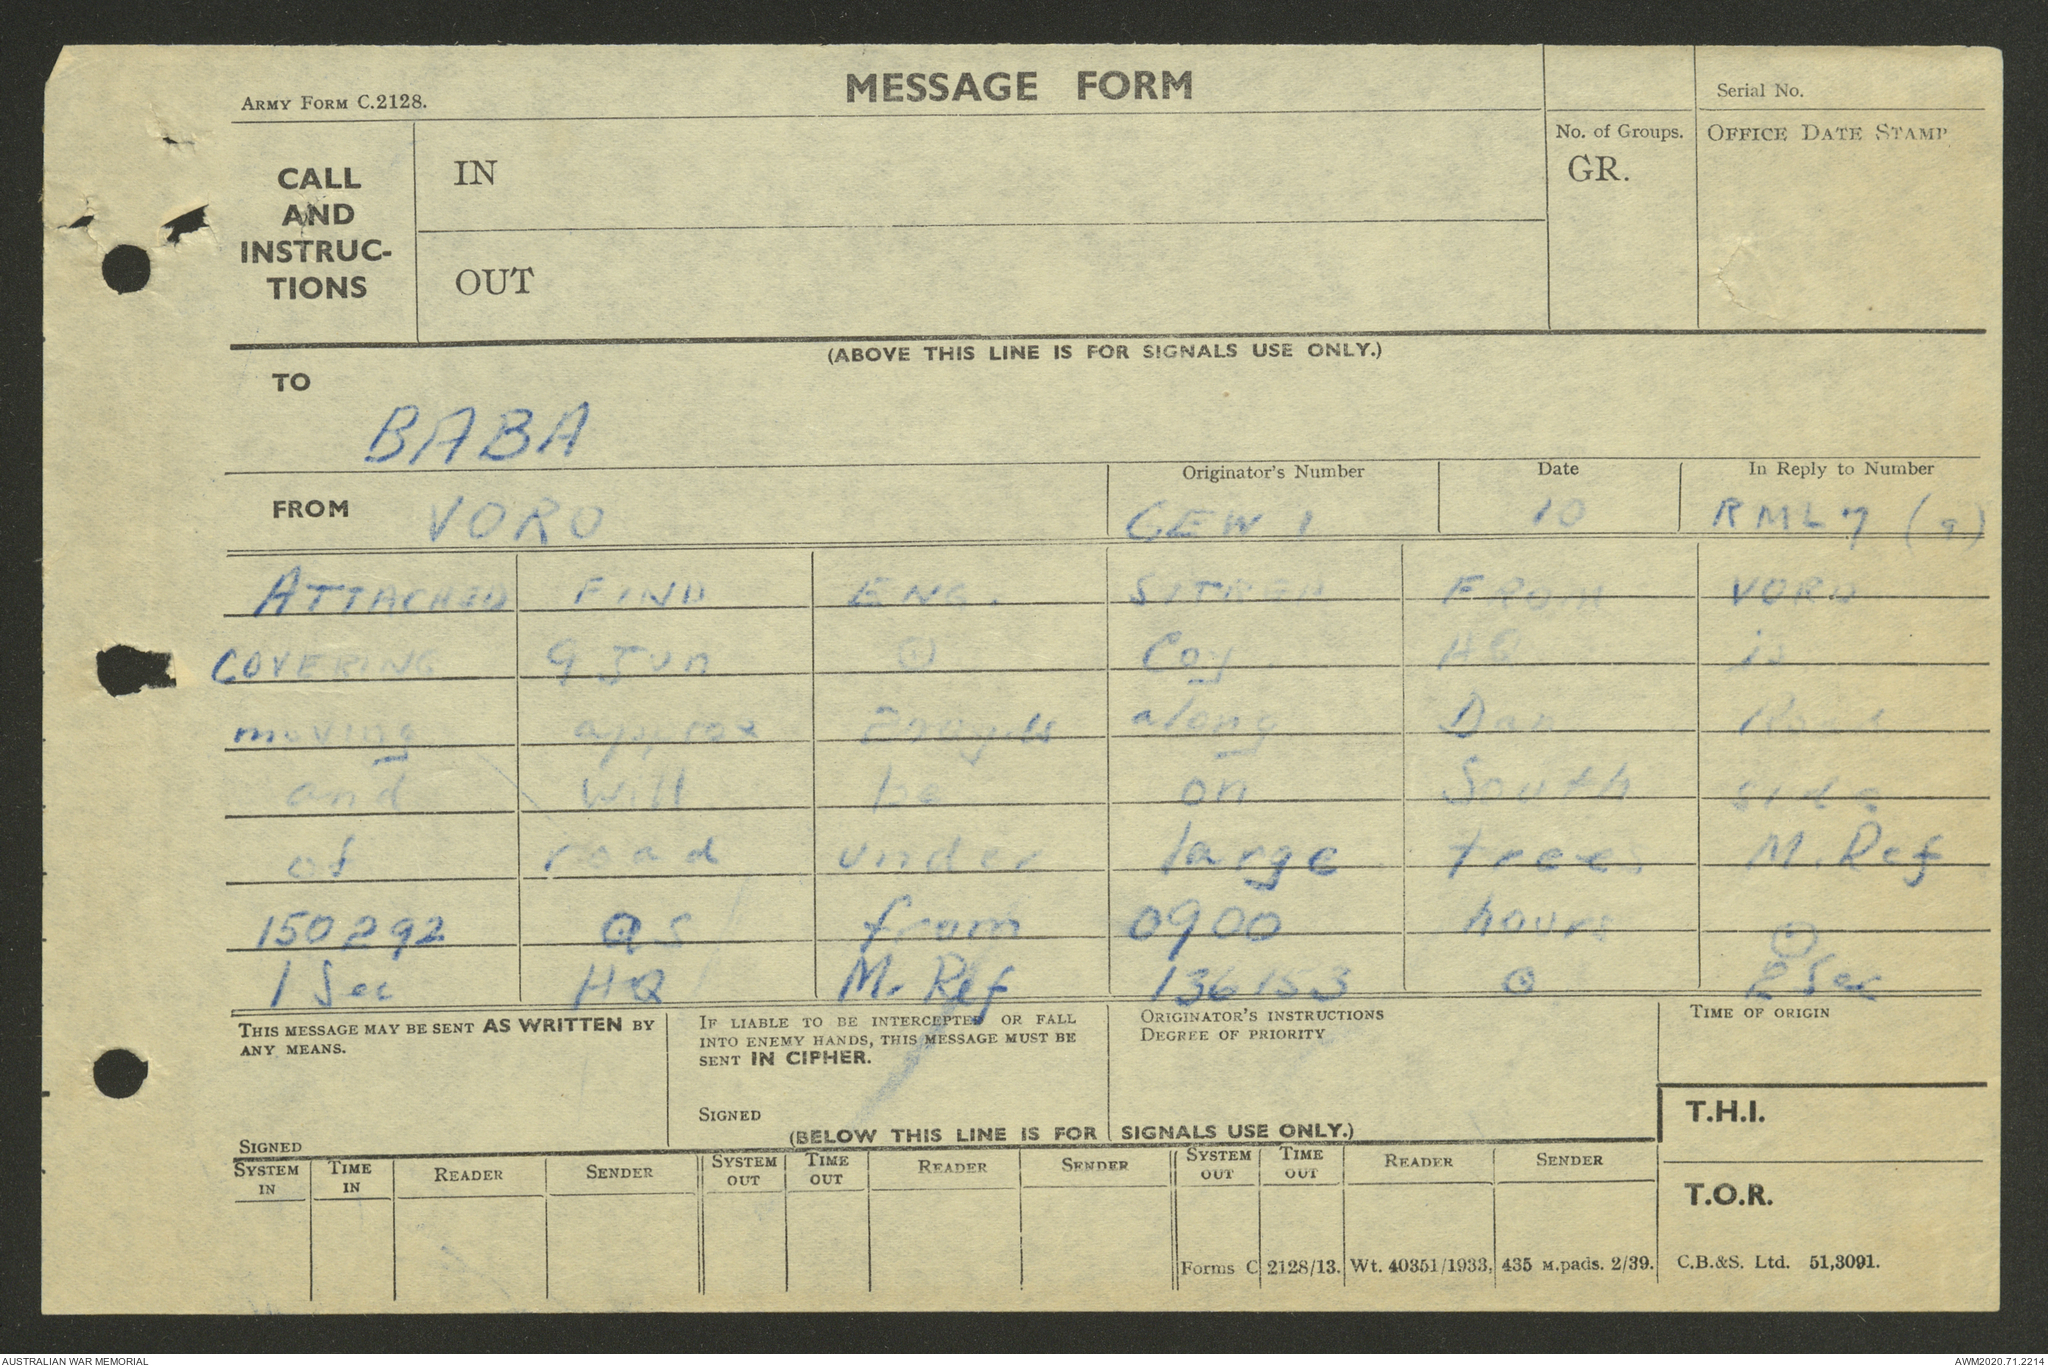 MESSAGE FORM
ARMY FORM C.2128.
Serial No.
CALL AND INSTRUC-TIONS
IN
OUT
No. of Groups.
GR.
OFFICE DATE STAMP
(ABOVE THIS LINE IS FOR SIGNALS USE ONLY.)
TO
BABA
FROM VORO
Originator's Number
GEW 1
Date
10
In Reply to Number
RML 7 (9)
ATTACHED FIND ENG. SITREP FROM VORO
COVERING 9 Jun ⊙ Coy HQ is
moving approx 200yds along Dan Road
and will be on South side
of road under large trees M. Ref
150292 as from 0900 hours ⊙
1 Sec HQ M. Ref 136153 ⊙ 2 Sec
THIS MESSAGE MAY BE SENT AS WRITTEN BY ANY MEANS.
SIGNED
IF LIABLE TO BE INTERCEPTED OR FALL INTO ENEMY HANDS, THIS MESSAGE MUST BE SENT IN CIPHER.
SIGNED
ORIGINATOR'S INSTRUCTIONS
DEGREE OF PRIORITY
TIME OF ORIGIN
T.H.I.
(BELOW THIS LINE IS FOR SIGNALS USE ONLY.)
SYSTEM IN TIME IN READER SENDER SYSTEM OUT TIME OUT READER SENDER SYSTEM OUT TIME OUT READER SENDER
T.O.R.
Forms C 2128/13. Wt. 40351/1933. 435 M.pads. 2/39. C.B.&S. Ltd. 51,3091.
AUSTRALIAN WAR MEMORIAL
AWM2020.71.2214